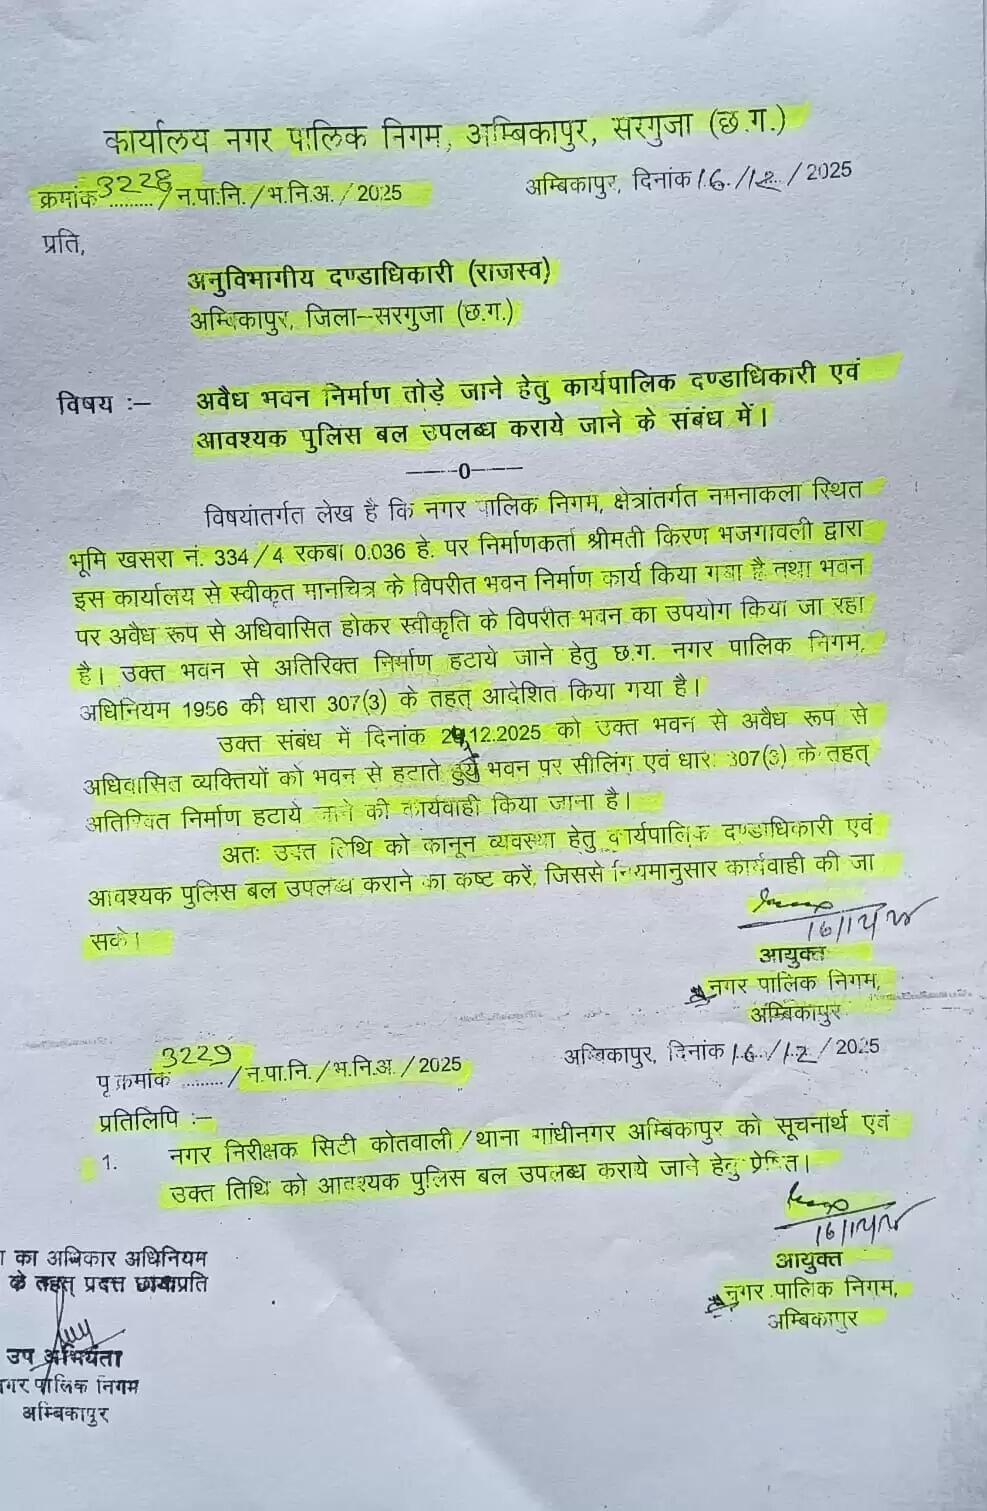 कार्यालय नगर पालिक निगम, अम्बिकापुर, सरगुजा (छ.ग.)
क्रमांक 3228 /न.पा.नि./भ.नि.अ./2025 अम्बिकापुर, दिनांक 16/12/2025
प्रति,
अनुविभागीय दण्डाधिकारी (राजस्व)
अम्बिकापुर, जिला–सरगुजा (छ.ग.)
विषय :– अवैध भवन निर्माण तोड़े जाने हेतु कार्यपालिक दण्डाधिकारी एवं
आवश्यक पुलिस बल उपलब्ध कराये जाने के संबंध में।
–––0–––
विषयांतर्गत लेख है कि नगर पालिक निगम, क्षेत्रांतर्गत नमनाकला स्थित
भूमि खसरा नं. 334/4 रकबा 0.036 हे. पर निर्माणकर्ता श्रीमती किरण भजगावली द्वारा
इस कार्यालय से स्वीकृत मानचित्र के विपरीत भवन निर्माण कार्य किया गया है तथा भवन
पर अवैध रूप से अधिवासित होकर स्वीकृति के विपरीत भवन का उपयोग किया जा रहा
है। उक्त भवन से अतिरिक्त निर्माण हटाये जाने हेतु छ.ग. नगर पालिक निगम,
अधिनियम 1956 की धारा 307(3) के तहत् आदेशित किया गया है।
उक्त संबंध में दिनांक .12.2025 को उक्त भवन से अवैध रूप से
अधिवासित व्यक्तियों को भवन से हटाते हुये भवन पर सीलिंग एवं धारा 307(3) के तहत्
अतिरिक्त निर्माण हटाये जाने की कार्यवाही किया जाना है।
अतः उक्त तिथि को कानून व्यवस्था हेतु कार्यपालिक दण्डाधिकारी एवं
आवश्यक पुलिस बल उपलब्ध कराने का कष्ट करें, जिससे नियमानुसार कार्यवाही की जा
सके।
16/12/25
आयुक्त
नगर पालिक निगम,
अम्बिकापुर
पृ.क्रमांक 3229 /न.पा.नि./भ.नि.अ./2025 अम्बिकापुर, दिनांक 16/12/2025
प्रतिलिपि :–
1. नगर निरीक्षक सिटी कोतवाली/थाना गांधीनगर अम्बिकापुर को सूचनार्थ एवं
उक्त तिथि को आवश्यक पुलिस बल उपलब्ध कराये जाने हेतु प्रेषित।
16/12/25
आयुक्त
नगर पालिक निगम,
अम्बिकापुर
का अधिकार अधिनियम
के तहत् प्रदत्त छायाप्रति
उप अभियंता
नगर पालिक निगम
अम्बिकापुर